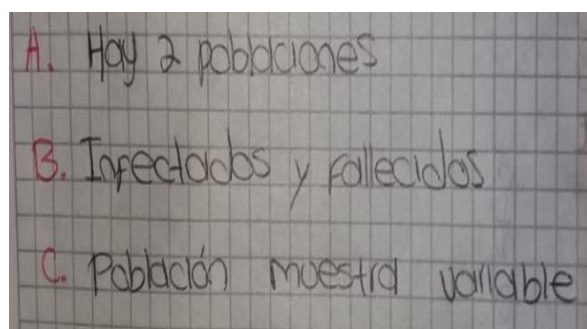 A. Hay 2 poblaciones
B. Infectados y fallecidos
C. Población muestra variable